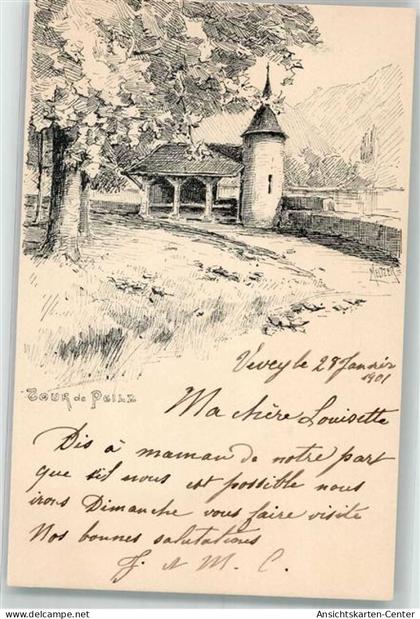 MULLER
Tour de Peilz
Vevey le 28 Janvier
1901
Ma chère Louisette
Dis à maman de notre part
que s'il nous est possible nous
irons Dimanche vous faire visite
Nos bonnes salutations
J. et M. C.
Ansichtskarten-Center